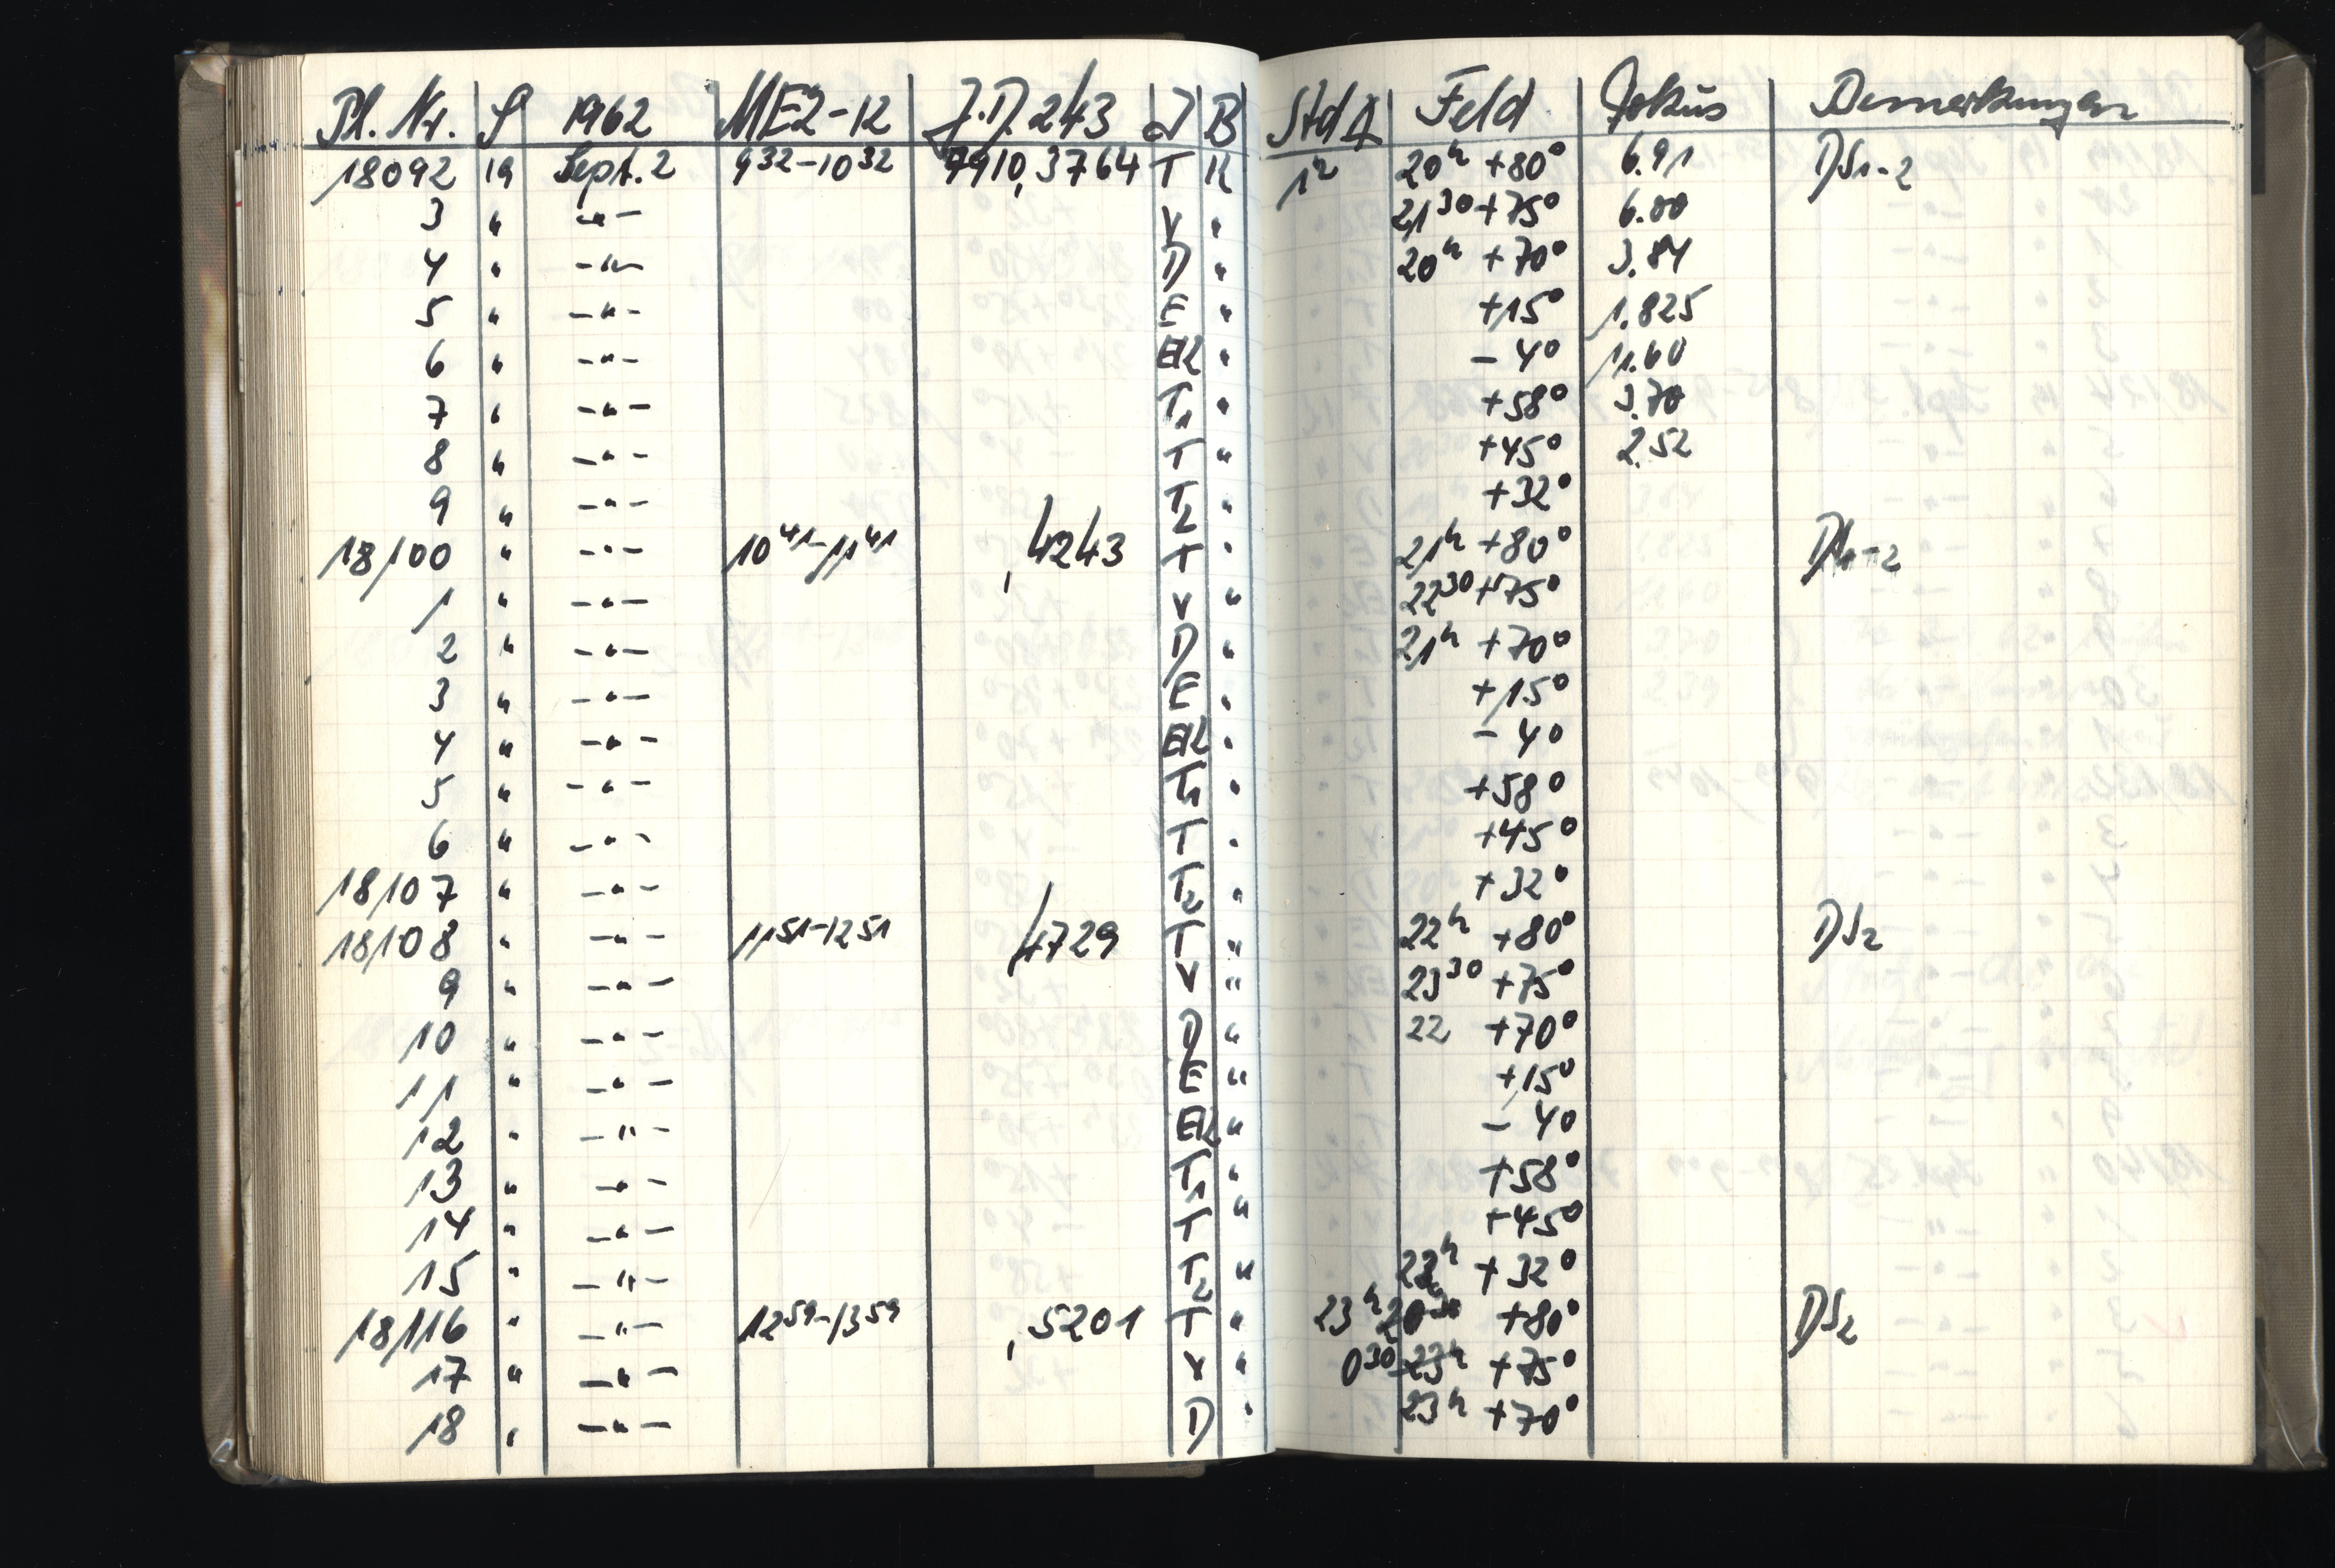 Pl. Nr. S 1962 MEZ-12 J.D. 243 J B Std A Feld Fokus Bemerkungen
18092 19 Sept. 2 9 32 - 10 32 7910,3764 T K 1h 20h +80° 6.91 DS1-2
3 " -"- V " 21 30 +75° 6.00
4 " -"- D " 20h +70° 3.84
5 " -"- E " +15° 1.825
6 " -"- EK " - 4° 11.60
7 " -"- T1 " +58° 3.70
8 " -"- T " +45° 2.52
9 " -"- T2 " +32°
18100 " -"- 10 41 - 11 41 ,4243 T " 21h +80° DS1-2
1 " -"- V " 22 30 +75°
2 " -"- D " 21h +70°
3 " -"- E " +15°
4 " -"- EK " - 4°
5 " -"- T1 " +58°
6 " -"- T " +45°
18107 " -"- T2 " +32°
18108 " -"- 11 51 - 12 51 ,4729 T " 22h +80° DS2
9 " -"- V " 23 30 +75°
10 " -"- D " 22 +70°
11 " -"- E " +15°
12 " -"- EK " - 4°
13 " -"- T1 " +58°
14 " -"- T " +45°
15 " -"- T2 " 22h +32°
18116 " -"- 12 59 - 13 59 ,5201 T " 23h +80° DS2
17 " -"- V " 0 30 23h +75°
18 " -"- D " 23h +70°